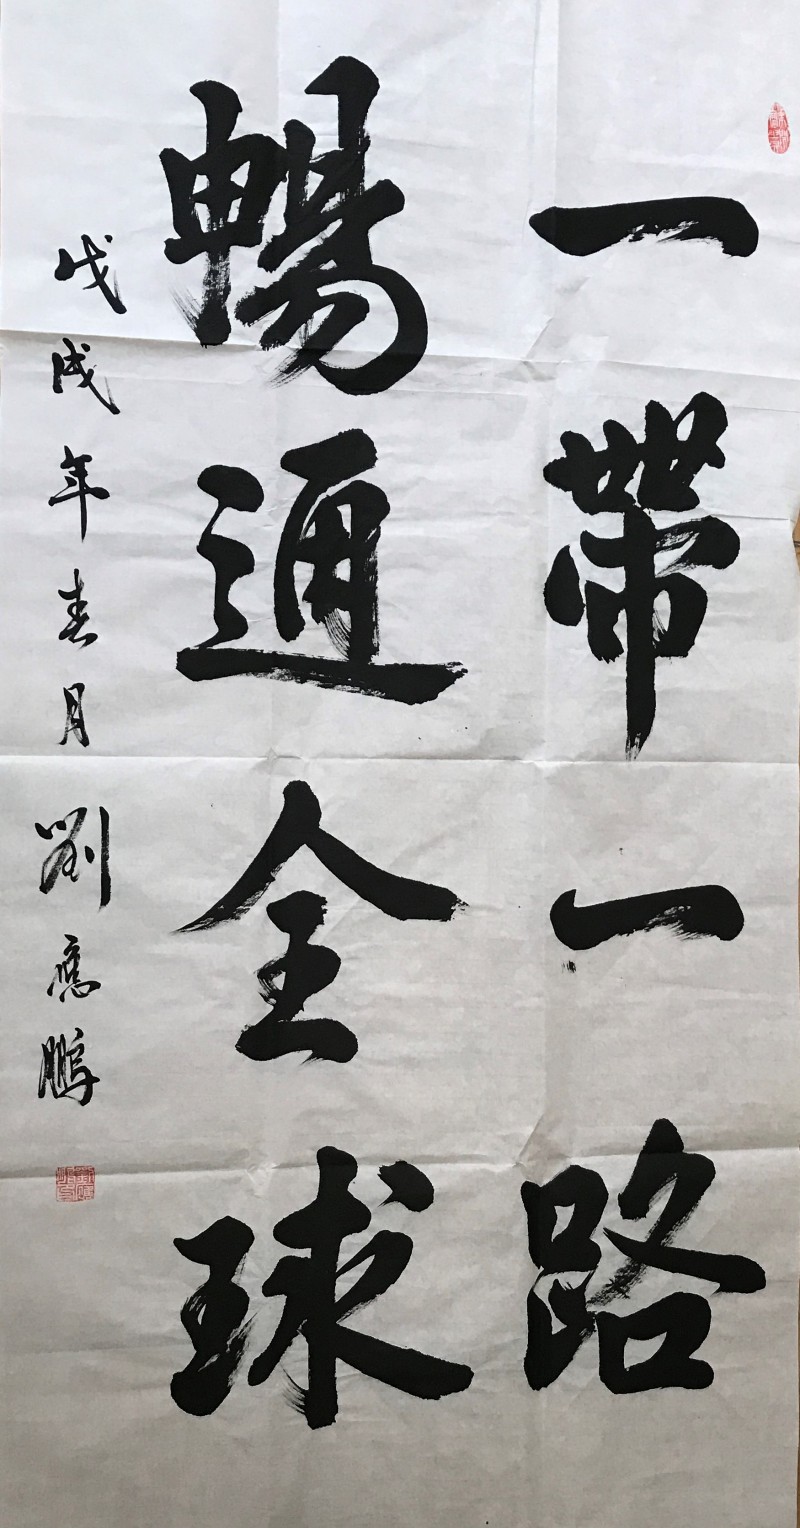 一帶一路
暢通全球
戊戌年春月劉應鵬